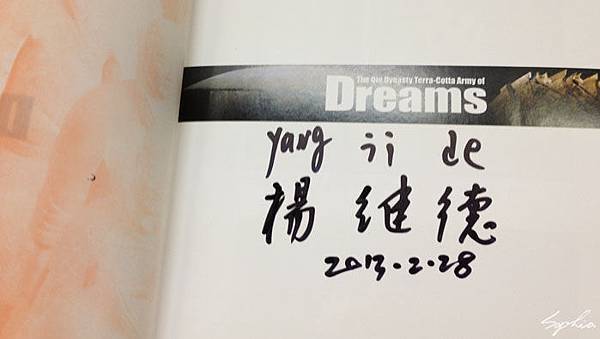 The Qin Dynasty Terra-Cotta Army of
Dreams
yang ji de
楊 继 德
2013.2.28
Sophia